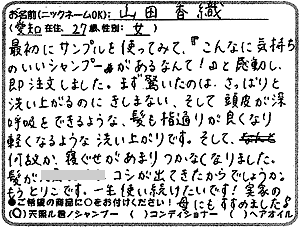 お名前(ニックネームOK): 山田 春織
(愛知 在住、27歳、性別: 女 )
最初にサンプルを使ってみて、『こんなに気持ち
のいいシャンプーがあるなんて!』と感動し、
即注文しました。まず驚いたのは、さっぱりと
洗い上がるのにきしまない、そして頭皮が深
呼吸をできるような、髪も指通りが良くなり
軽くなるような洗い上がりです。そして、
何故か、寝ぐせがあまりつかなくなりました。
髪が コシが出てきたからでしょうか。
もうとりこです。一生使い続けたいです!実家の
母にもすすめました♪
●ご希望の商品に○をお付けください!
(○)天照ル君ノシャンプー ( )コンディショナー ( )ヘアオイル